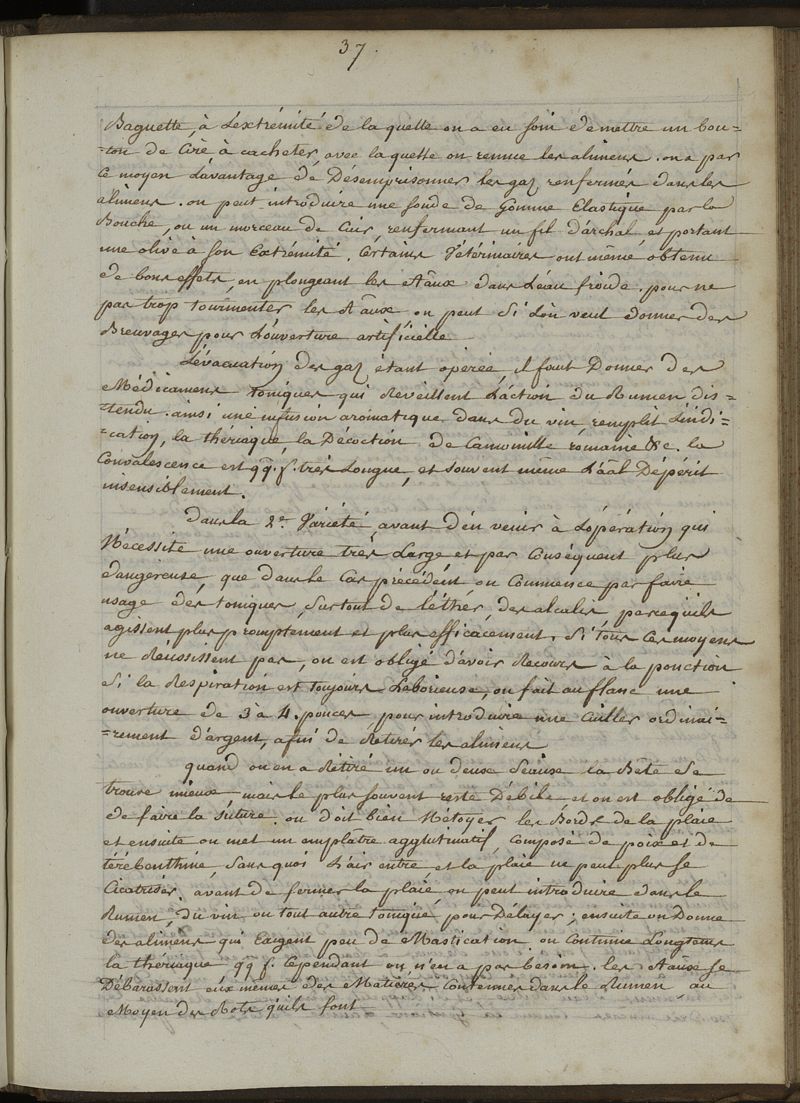 37.
Baguette, à L'extrémité de la quelle on a eu soin de mettre un bou=
=ton de Cire à cacheter, avec la quelle on remue les alimens. on a par
ce moyen L'avantage de Désemprisonner les gaz renfermés dans les
alimens. on peut introduire une sonde de Gomme Elastique par la
Bouche, ou un morceau de Cuir, renfermant un fil d'archal, et portant
une olive à son Extrémité. Certains Vétérinaires ont même obtenu
de bons effets, en plongeant les Aãux dans L'eau froide. pour ne
pas trop tourmenter les Aãux on peut Si L'on veut donner des
Breuvages pour L'ouverture artificielle
L'évacuation des gaz étant opérée, il faut Donner des
Médicamens toniques qui Réveillent L'action du Rumen dis=
=tendu. ainsi une infusion aromatique dans du vin, remplit L'indi=
=cation, la thériaque, la Décoction de Camomille romaine &c. la
Convalescence est qq. f. très Longue, et souvent même L'aãl Dépérit
insensiblement.
Dans la 2e. Variété, avant d'en venir à L'opération qui
Nécessite une ouverture très Large, et par Conséquent plus
dangereuse, que dans le Cas précédent, on Commence par faire
usage des toniques, Surtout de l'éther, des alcalis, parcequ'ils
agissent plus promptement et plus efficacement. Si tous Ces moyens
ne Réussissent pas, on est obligé d'avoir Recours à la ponction
Si la Respiration est toujours Laborieuse, on fait au flanc une
ouverture de 3 à 4. pouces pour introduire une Cuiller ordinai=
=rement d'argent, afin de Retirer les alimens
quand on en a Rétiré un ou deux Séaux la Bête Se
trouve mieux, mais le plus souvent reste Débile, et on est obligé de
de faire la suture. on doit bien Nétoyer les Bords de la plaie
et ensuite on met un emplâtre agglutinatif, composé de poix et de
térébenthine, Sans quoi L'air entre et la plaie ne peut plus Se
Cicatriser. avant de fermer la plaie, on peut introduire dans le
Rumen, Du vin ou tout autre tonique, pour Délayer; ensuite on Donne
des alimens qui Exigent peu de Mastication. on Continue Longtems
la thériaque qq. f. Cependant on n'en a pas besoin. les Aãux se
Débarassent eux memes des Matières Contenues dans le Rumen, au
Moyen des Rots qu'ils font